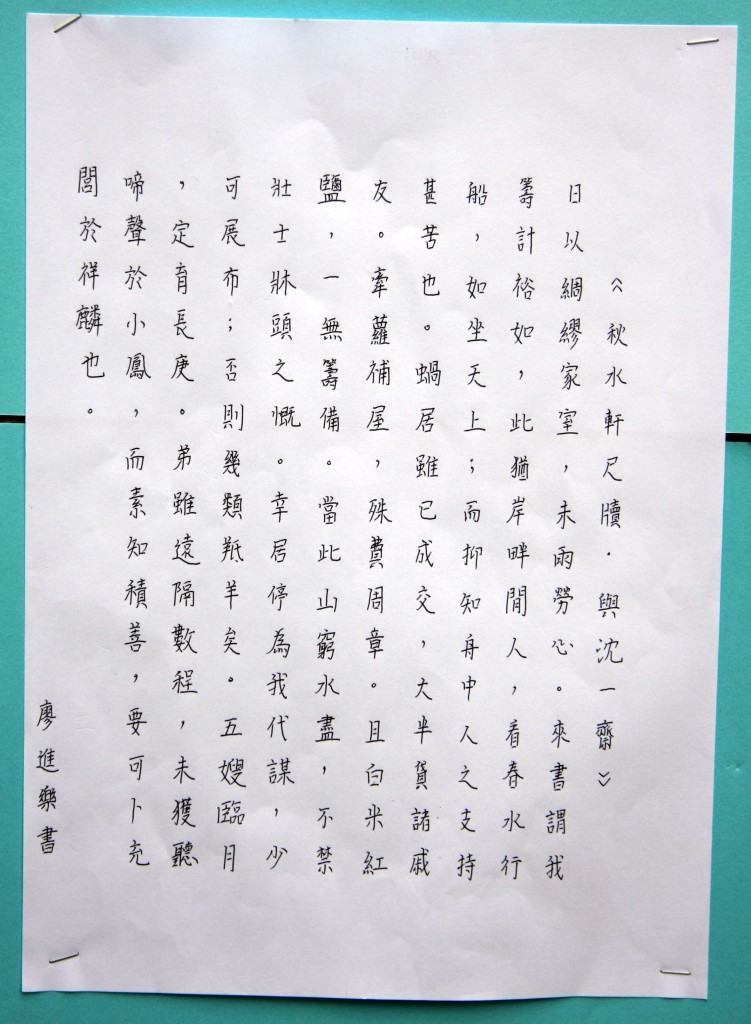 《秋水軒尺牘．與沈一齋》
日以綢繆家室，未雨勞心。來書謂我
籌計裕如，此猶岸畔閒人，看春水行
船，如坐天上；而抑知舟中人之支持
甚苦也。蝸居雖已成交，大半貸諸戚
友。牽蘿補屋，殊費周章。且白米紅
鹽，一無籌備。當此山窮水盡，不禁
壯士牀頭之慨。幸居停為我代謀，少
可展布；否則幾類羝羊矣。五嫂臨月
，定育長庚。弟雖遠隔數程，未獲聽
啼聲於小鳳，而素知積善，要可卜充
閭於祥麟也。
廖進樂書